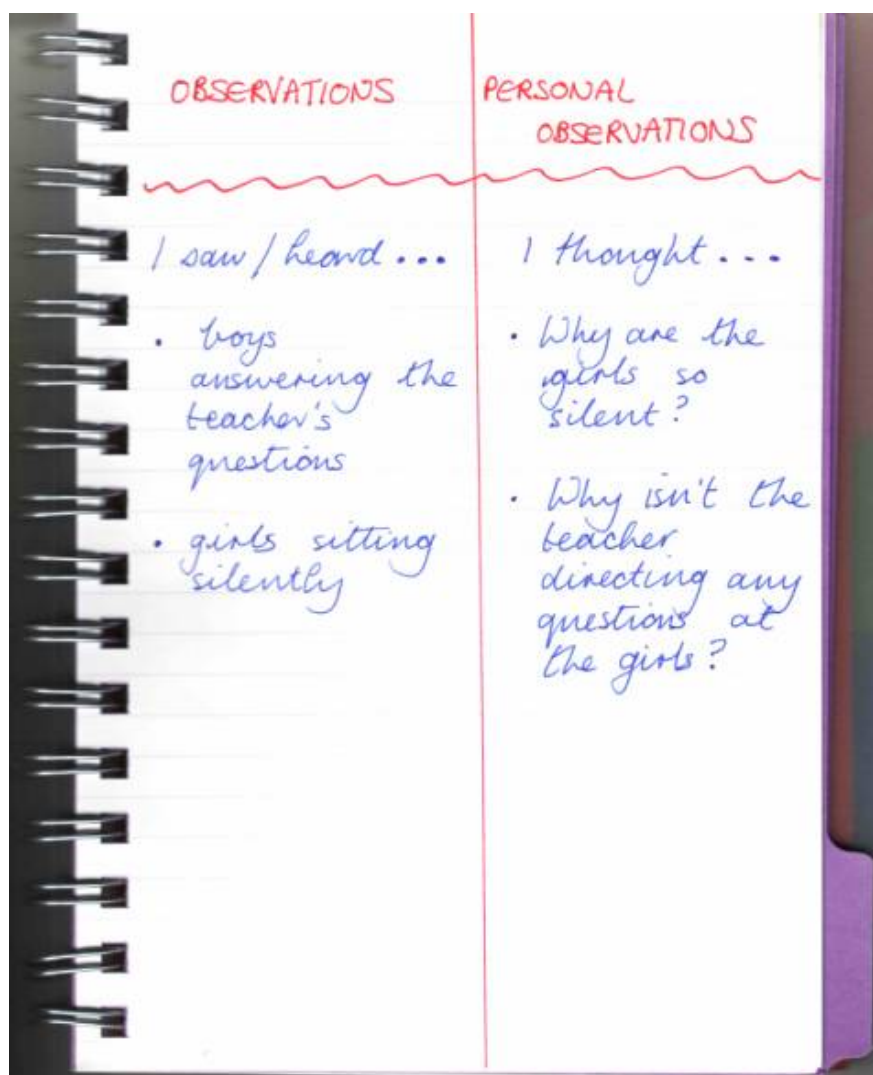 OBSERVATIONS
I saw / heard ...
. boys
answering the
teacher's
questions
. girls sitting
silently
PERSONAL
OBSERVATIONS
I thought ...
. Why are the
girls so
silent?
. Why isn't the
teacher
directing any
questions at
the girls?